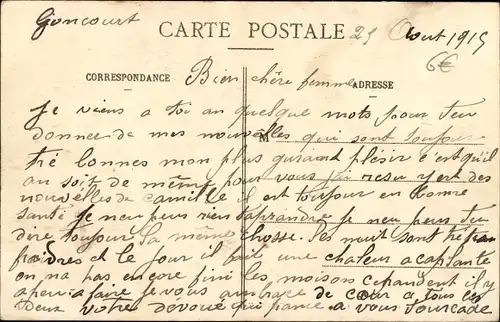 Goncourt
CARTE POSTALE 25 Aout 1915
6€
CORRESPONDANCE Bien chère femme ADRESSE
Je viens a toi an quelque mots pour teu
donner de mes nouvelles qui sont toujour
M
tré bonnes mon plus grand plésir c'est qu'il
an soit de même pour vous j'ai resu yert des
nouvelles de camille il est toujour en bonne
santé je neu peus rien taprandre je neu peus teu
dire toujour la même chosse. les nuit sont tré
froidres et le jour il fait une chaleur acaplante
on na pas encore fini les moisons cepandent il y
a peu a faire je vous ambrace de cœur a tous les
deux votre dévoué qui panse a vous Fourcade